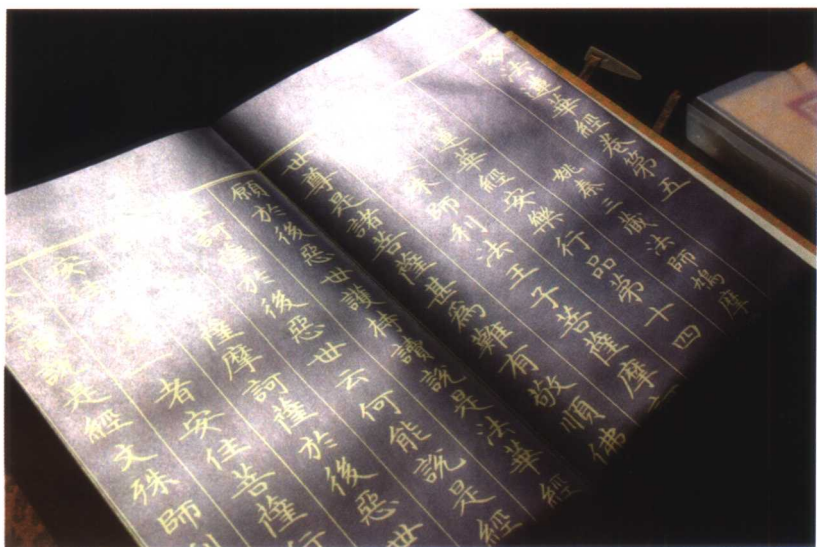 妙法蓮華經卷第五
姚秦三藏法師鳩摩
蓮華經安樂行品第十四
殊師利法王子菩薩摩
世尊是諸菩薩甚為難有敬順佛
願於後惡世護持讀說是法華經
訶薩於後惡世云何能說是經
薩摩訶薩於後惡世
者安住菩薩行
說是經文殊師利